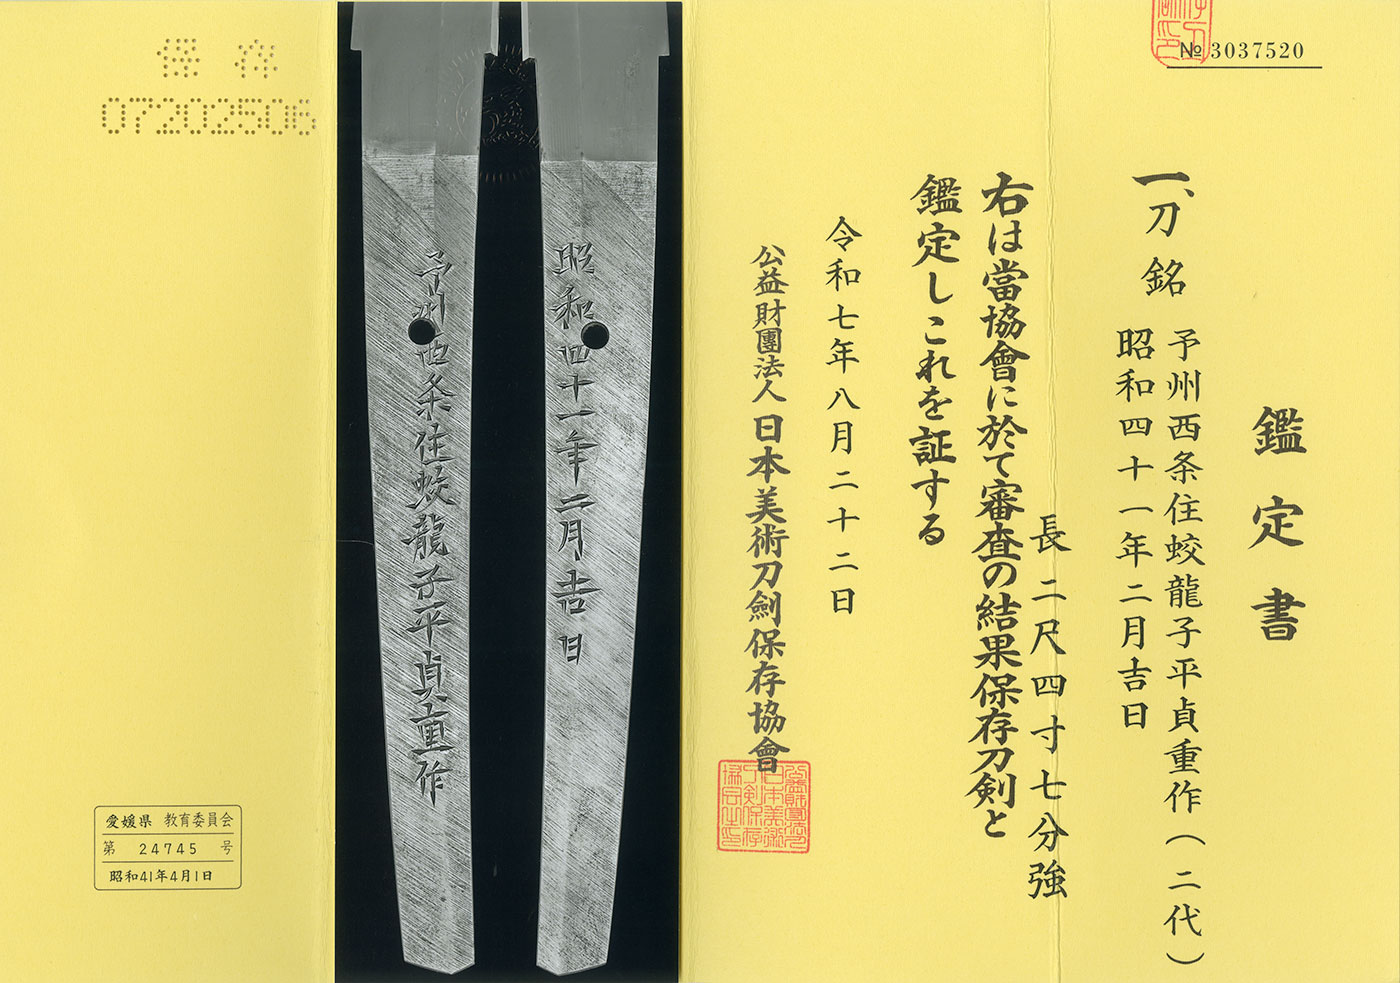 № 3037520
鑑定書
一、刀 銘 予州西条住蛟龍子平貞重作(二代)
昭和四十一年二月吉日
長二尺四寸七分強
右は當協會に於て審査の結果保存刀剣と
鑑定しこれを証する
令和七年八月二十二日
公益財團法人日本美術刀劍保存協會
昭和四十一年二月吉日
予州西条住蛟龍子平貞重作
保存
07202506
愛媛県 教育委員会
第 24745 号
昭和41年4月1日